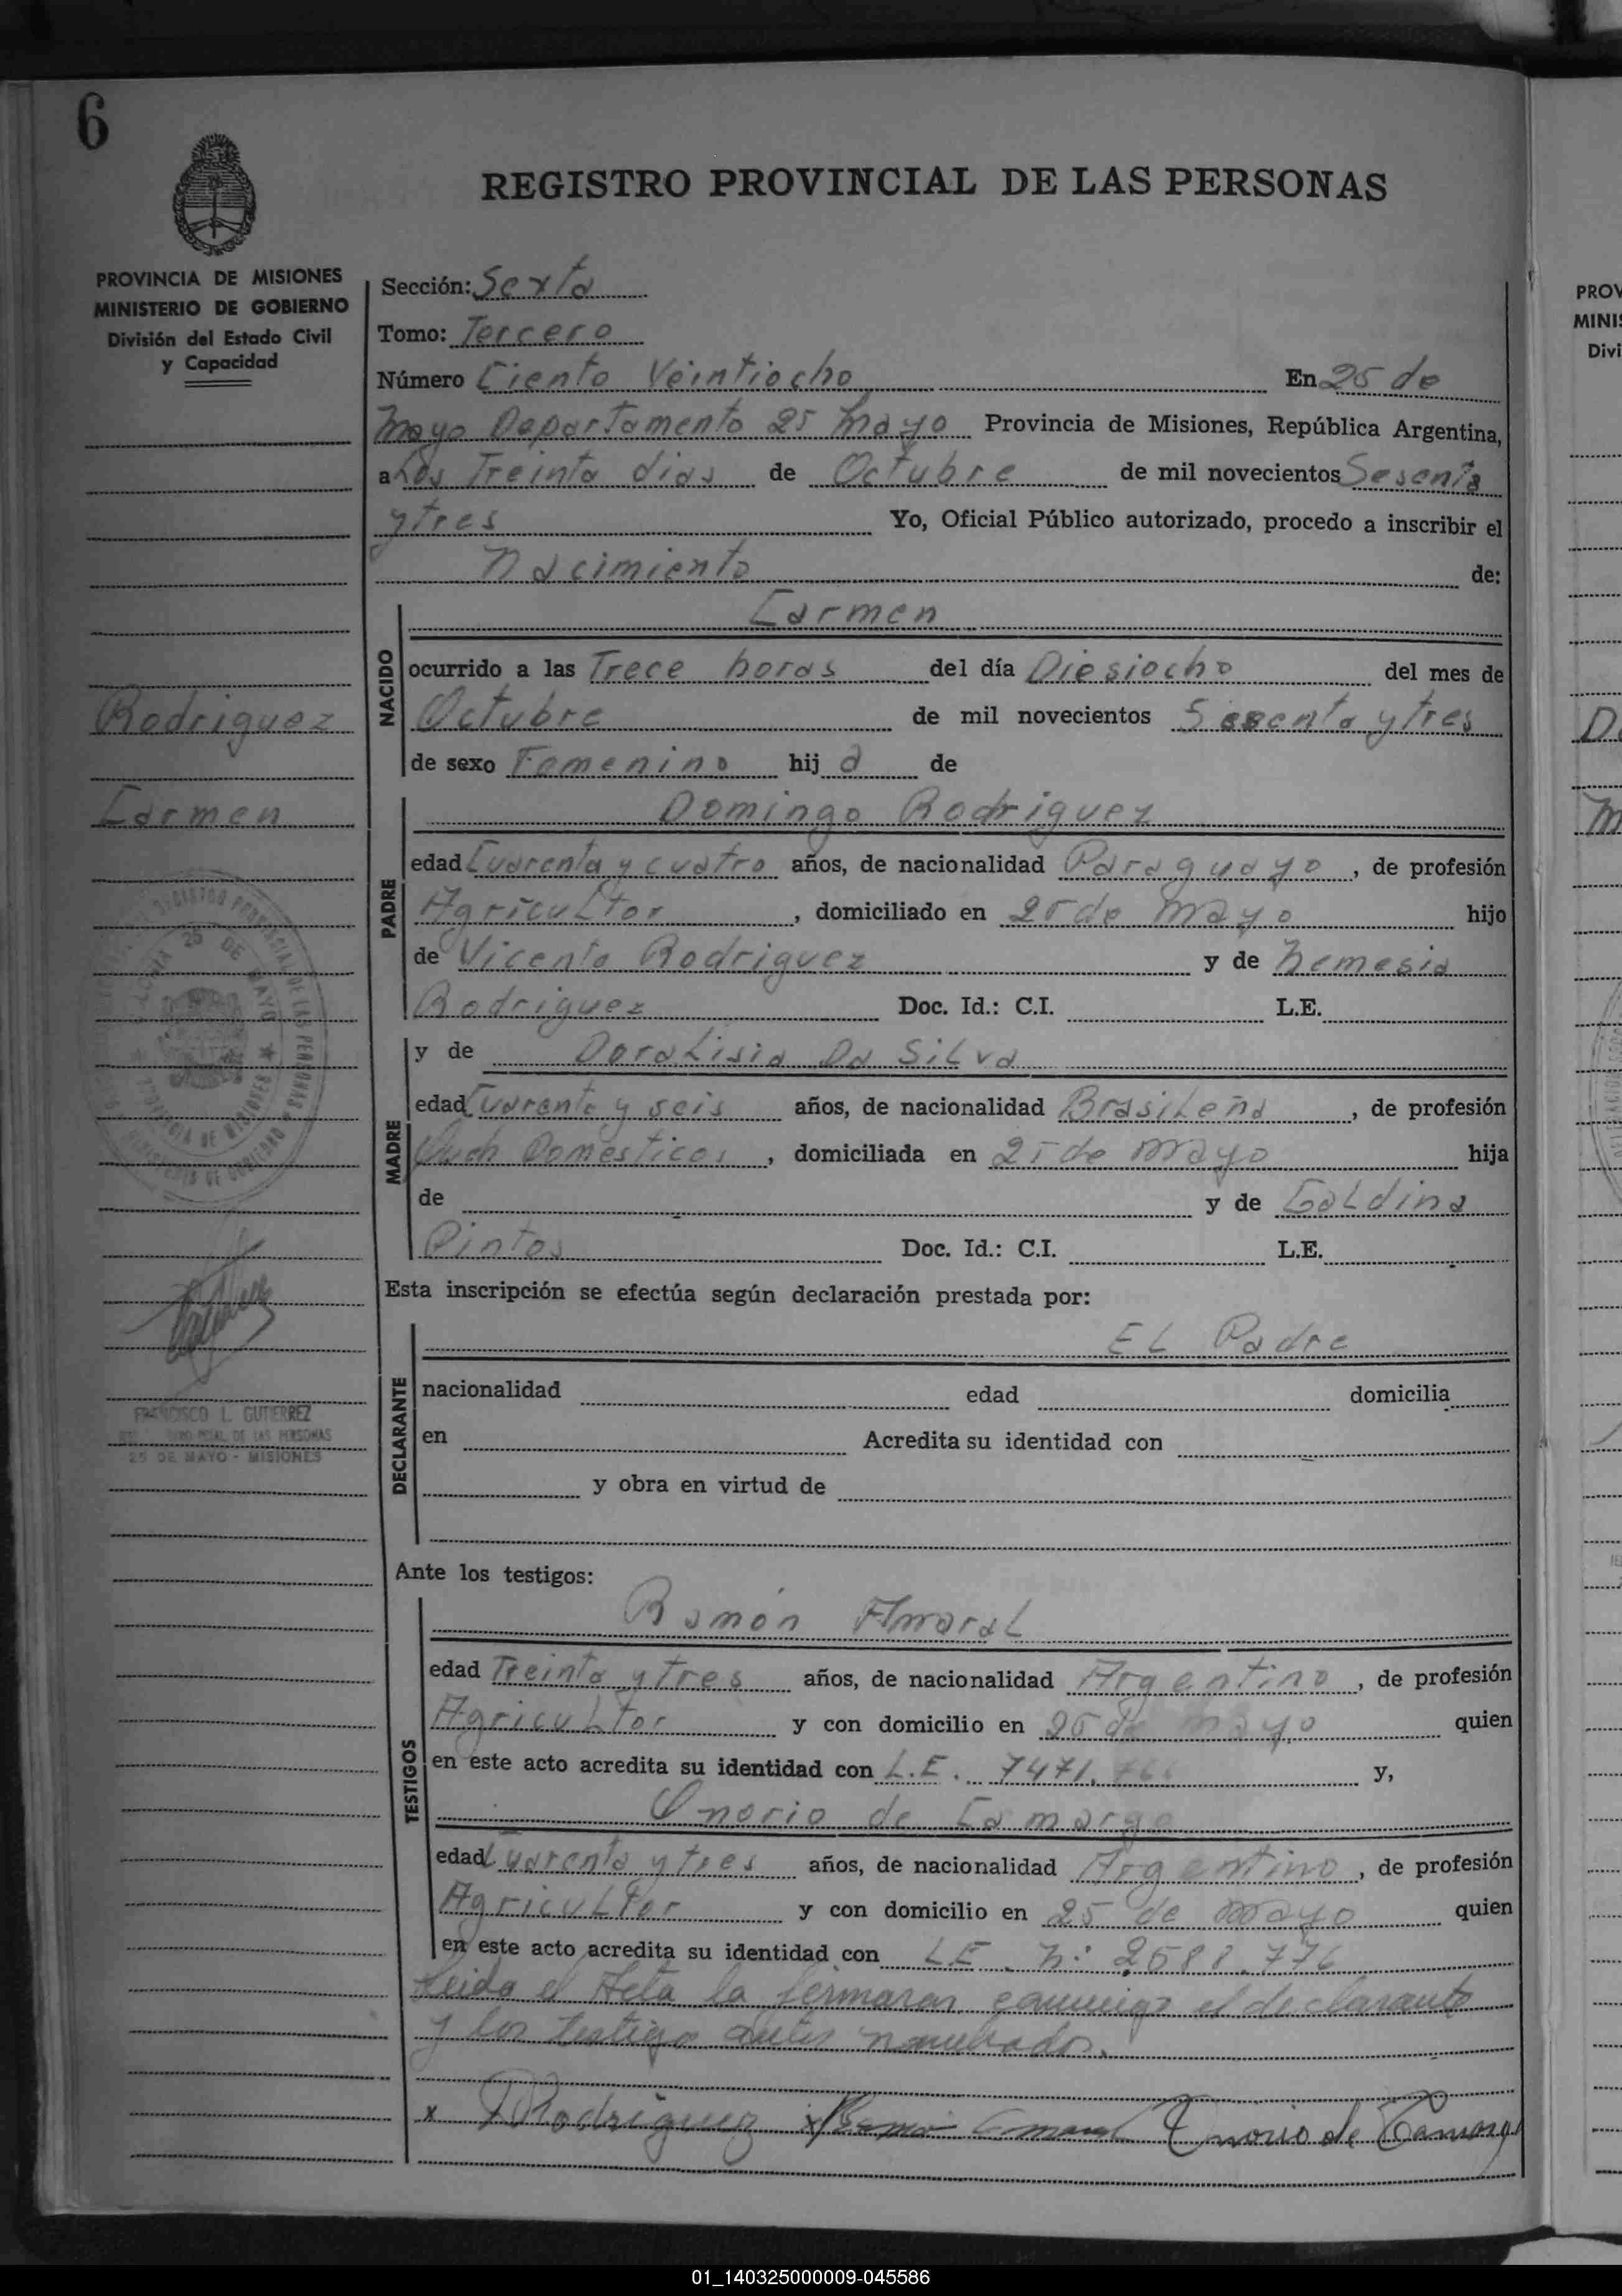 6
REGISTRO PROVINCIAL DE LAS PERSONAS
PROVINCIA DE MISIONES
MINISTERIO DE GOBIERNO
División del Estado Civil
y Capacidad
Rodriguez
Carmen
FRANCISCO L. GUTIERREZ
PCIAL DE LAS PERSONAS
25 DE MAYO - MISIONES
Sección: Sexta
Tomo: Tercero
Número Ciento Veintiocho En 25 de
Mayo Departamento 25 Mayo Provincia de Misiones, República Argentina,
a Los Treinta dias de Octubre de mil novecientos Sesenta
y tres Yo, Oficial Público autorizado, procedo a inscribir el
Nacimiento de:
NACIDO
Carmen
ocurrido a las Trece horas del día Diesiocho del mes de
Octubre de mil novecientos Sesenta y tres
de sexo Femenino hij a de
PADRE
Domingo Rodriguez
edad Cuarenta y cuatro años, de nacionalidad Paraguayo, de profesión
Agricultor, domiciliado en 25 de Mayo hijo
de Vicente Rodriguez y de Nemesia
Rodriguez Doc. Id.: C.I. L.E.
MADRE
y de Doralisia Da Silva
edad Cuarenta y seis años, de nacionalidad Brasileña, de profesión
Queh Domesticos, domiciliada en 25 de Mayo hija
de y de Galdina
Pintos Doc. Id.: C.I. L.E.
Esta inscripción se efectúa según declaración prestada por:
DECLARANTE
EL Padre
nacionalidad edad domicilia
en Acredita su identidad con
y obra en virtud de
Ante los testigos:
TESTIGOS
Ramón Amaral
edad Treinta y tres años, de nacionalidad Argentino, de profesión
Agricultor y con domicilio en 25 de Mayo quien
en este acto acredita su identidad con L.E. 7471. y,
Onorio de Camargo
edad Cuarenta y tres años, de nacionalidad Argentino, de profesión
Agricultor y con domicilio en 25 de Mayo quien
en este acto acredita su identidad con LE. N: 2588.776
Leida el Acta la firmaran conmigo el declarante
y los testigo antes nombrados.
x D Rodriguez x Ramon Amaral Onorio de Camargo
PROV
MINIS
Divi
01_140325000009-045586